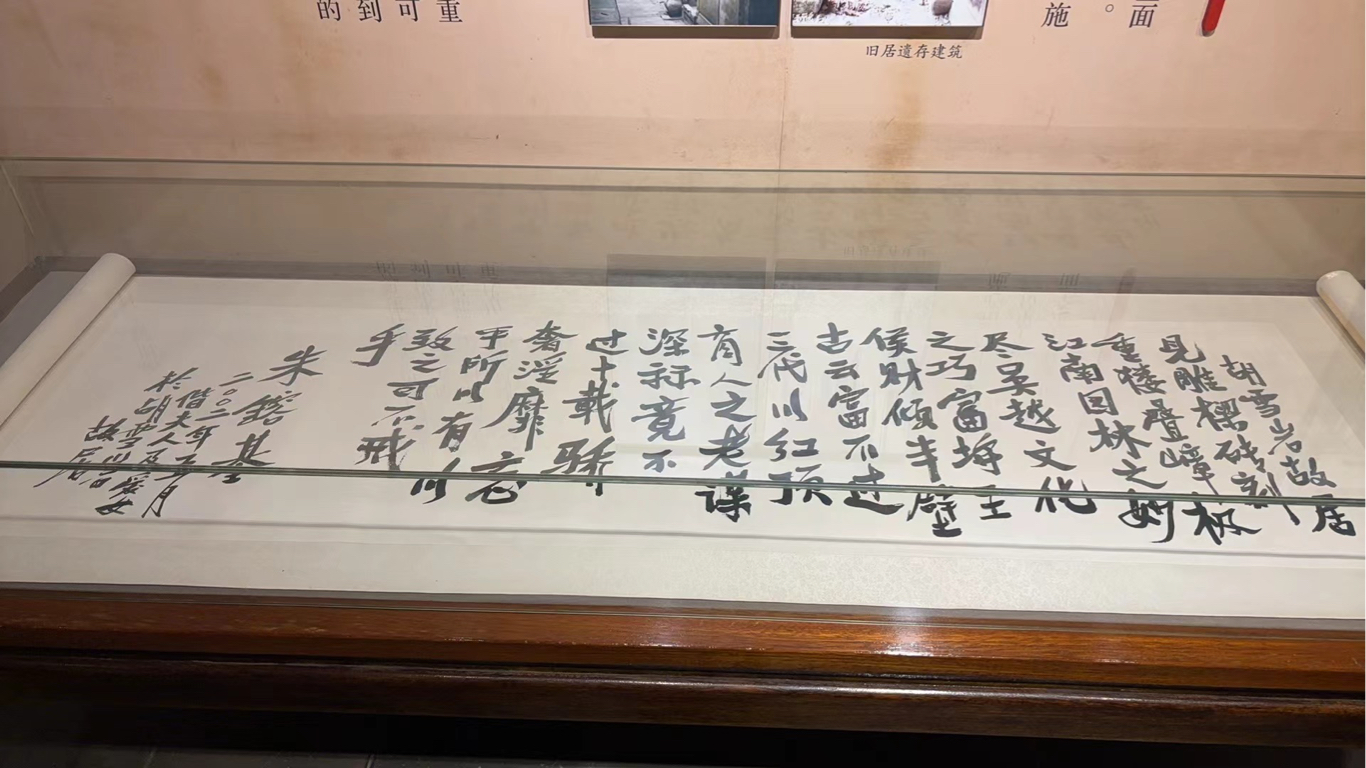 面
。
施
重
可
到
的
旧居遗存建筑
胡雪岩故居
见雕樑砖刻
重楼叠嶂极
江南园林之妙
尽吴越文化
之巧富埒王
侯财倾半壁
古云富不过
三代以红顶
商人之老谋
深祘竟不
过十载骄
奢淫靡忘
乎所以有以
致之可不戒
乎
朱镕基
二〇〇二年五月
偕夫人及爱女
於胡雪岩
故居